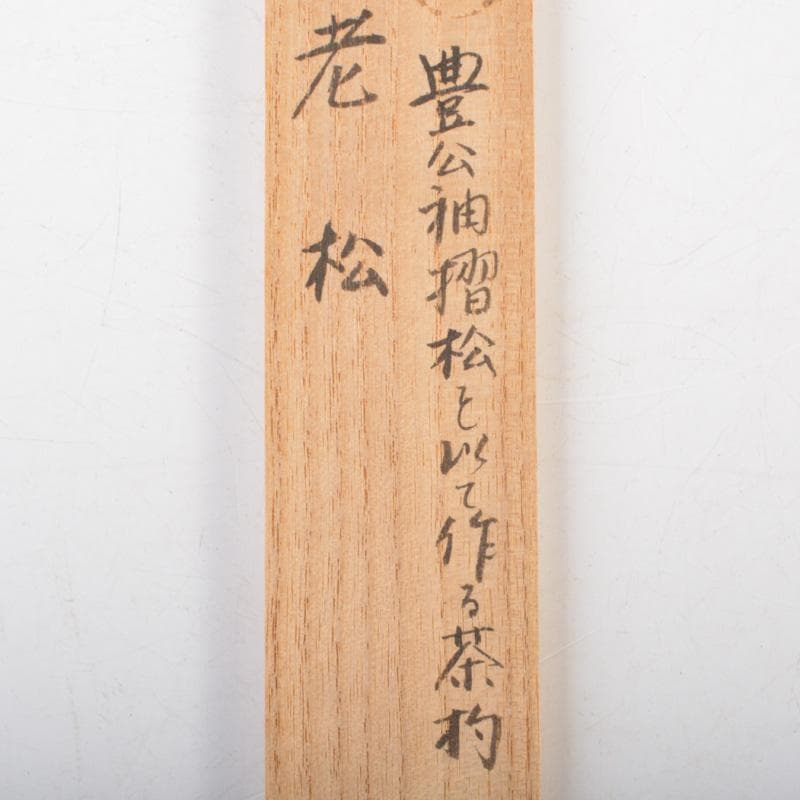 豊公袖摺松を以て作る茶杓
老松